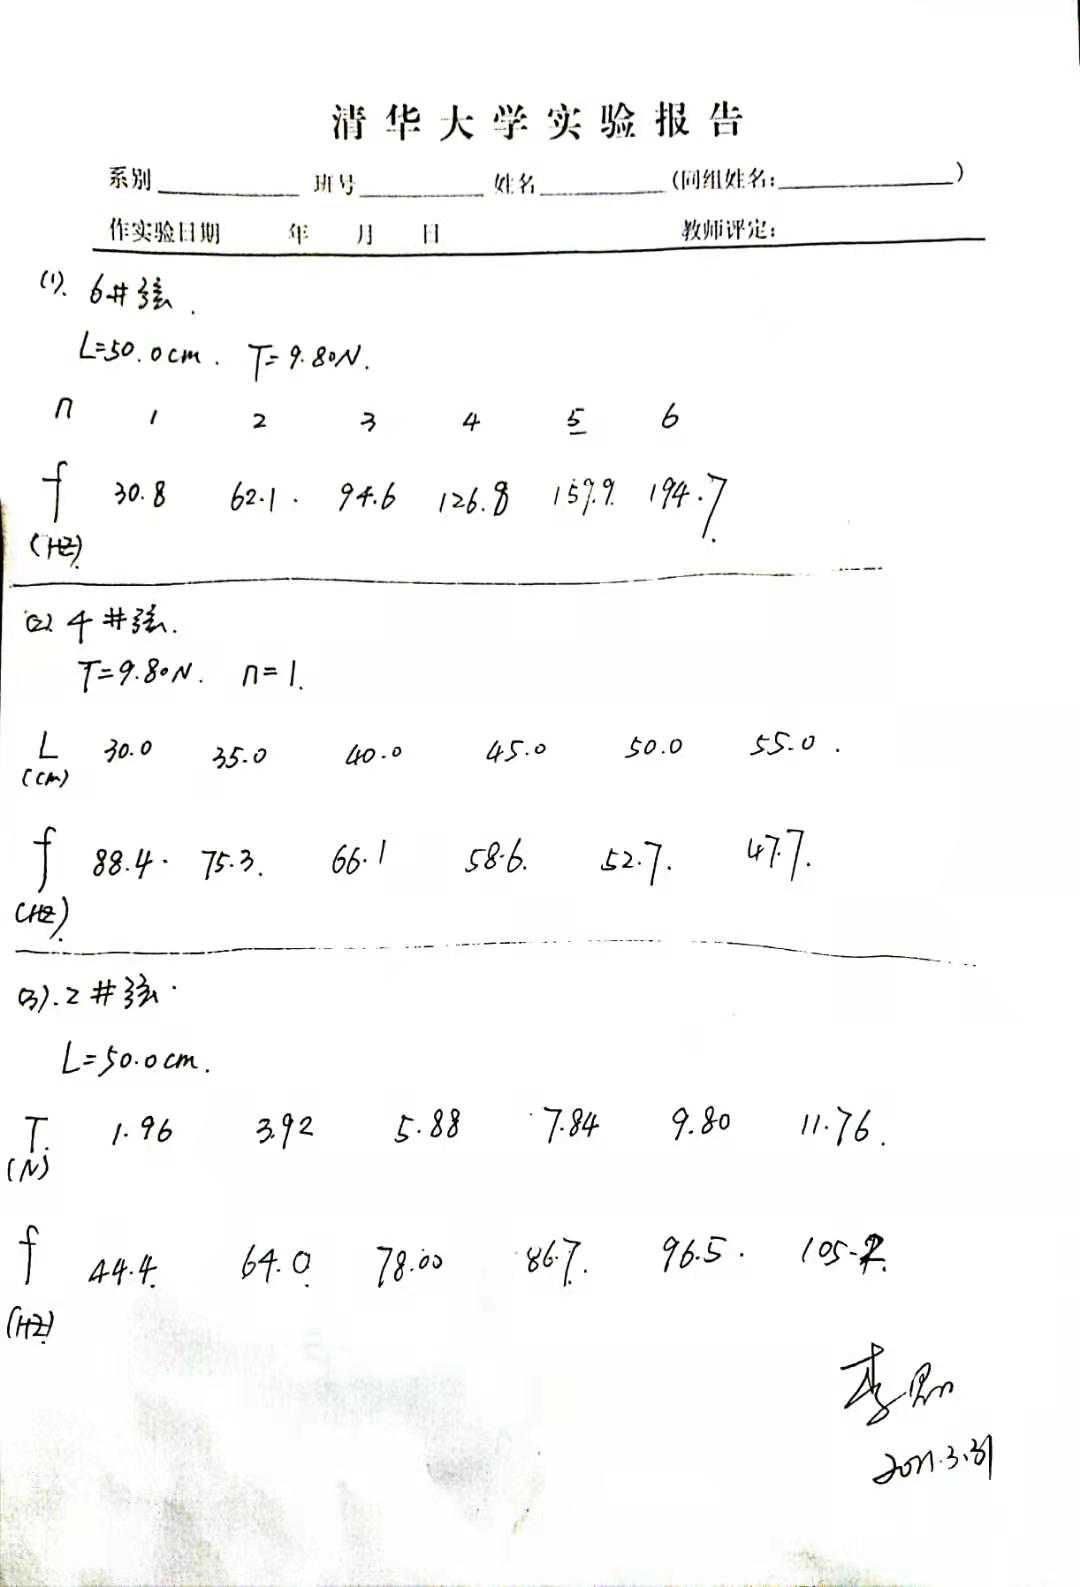 清华大学实验报告
系别 班号 姓名 (同组姓名: )
作实验日期 年 月 日 教师评定:
(1). 6#弦.
L=50.0cm. T=9.80N.
n 1 2 3 4 5 6
f 30.8 62.1 94.6 126.8 159.9 194.7
(HZ)
(2) 4#弦.
T=9.80N. n=1.
L 30.0 35.0 40.0 45.0 50.0 55.0
(cm)
f 88.4 75.3 66.1 58.6 52.7 47.7
(HZ)
(3). 2#弦.
L=50.0cm.
T 1.96 3.92 5.88 7.84 9.80 11.76
(N)
f 44.4 64.0 78.00 86.7 96.5
(HZ)